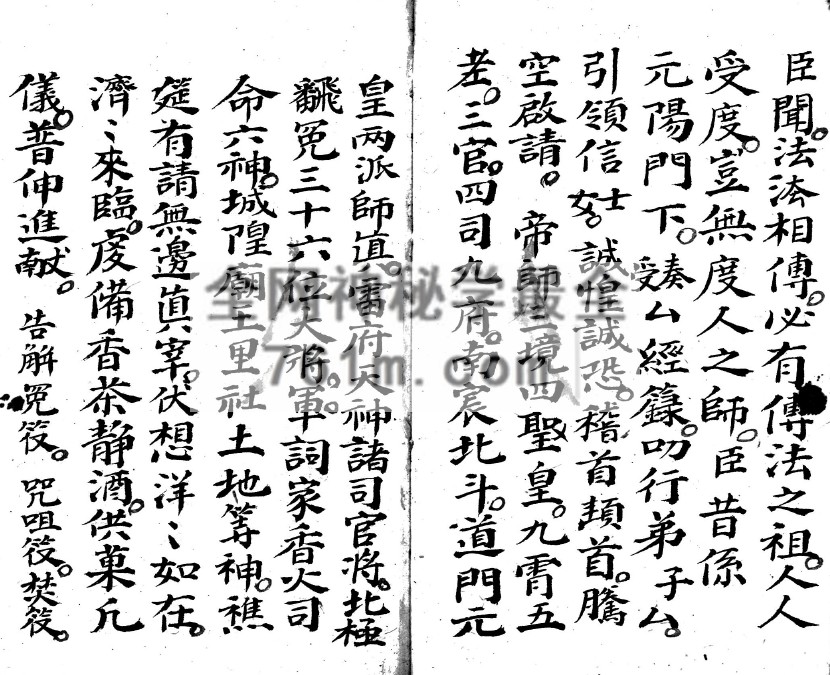 臣聞。法法相傳。必有傳法之祖。人人
受度。豈無度人之師。臣昔係
元陽門下。受奏厶經籙。叨行弟子厶。
引領信士女。誠惶誠恐。稽首頓首。騰
空啟請。帝師三境四聖皇。九霄五
老。三官。四司九府。南宸北斗。道門元
皇兩派師真。雷府天神諸司官將。北極
翻冤三十六位大將軍。詞家香火司
命六神。城隍廟王里社土地等神。醮
筵有請無邊真宰。伏想洋〻如在。
濟〻來臨。虔備香茶静酒。供菓凢
儀。普伸進献。告解冤筊。咒咀筊。焚筊。
全网神秘学最全
78lm.com